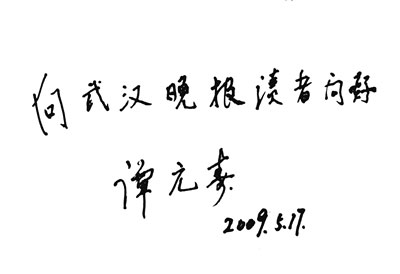 向武汉晚报读者问好
谭元寿
2009.5.17.